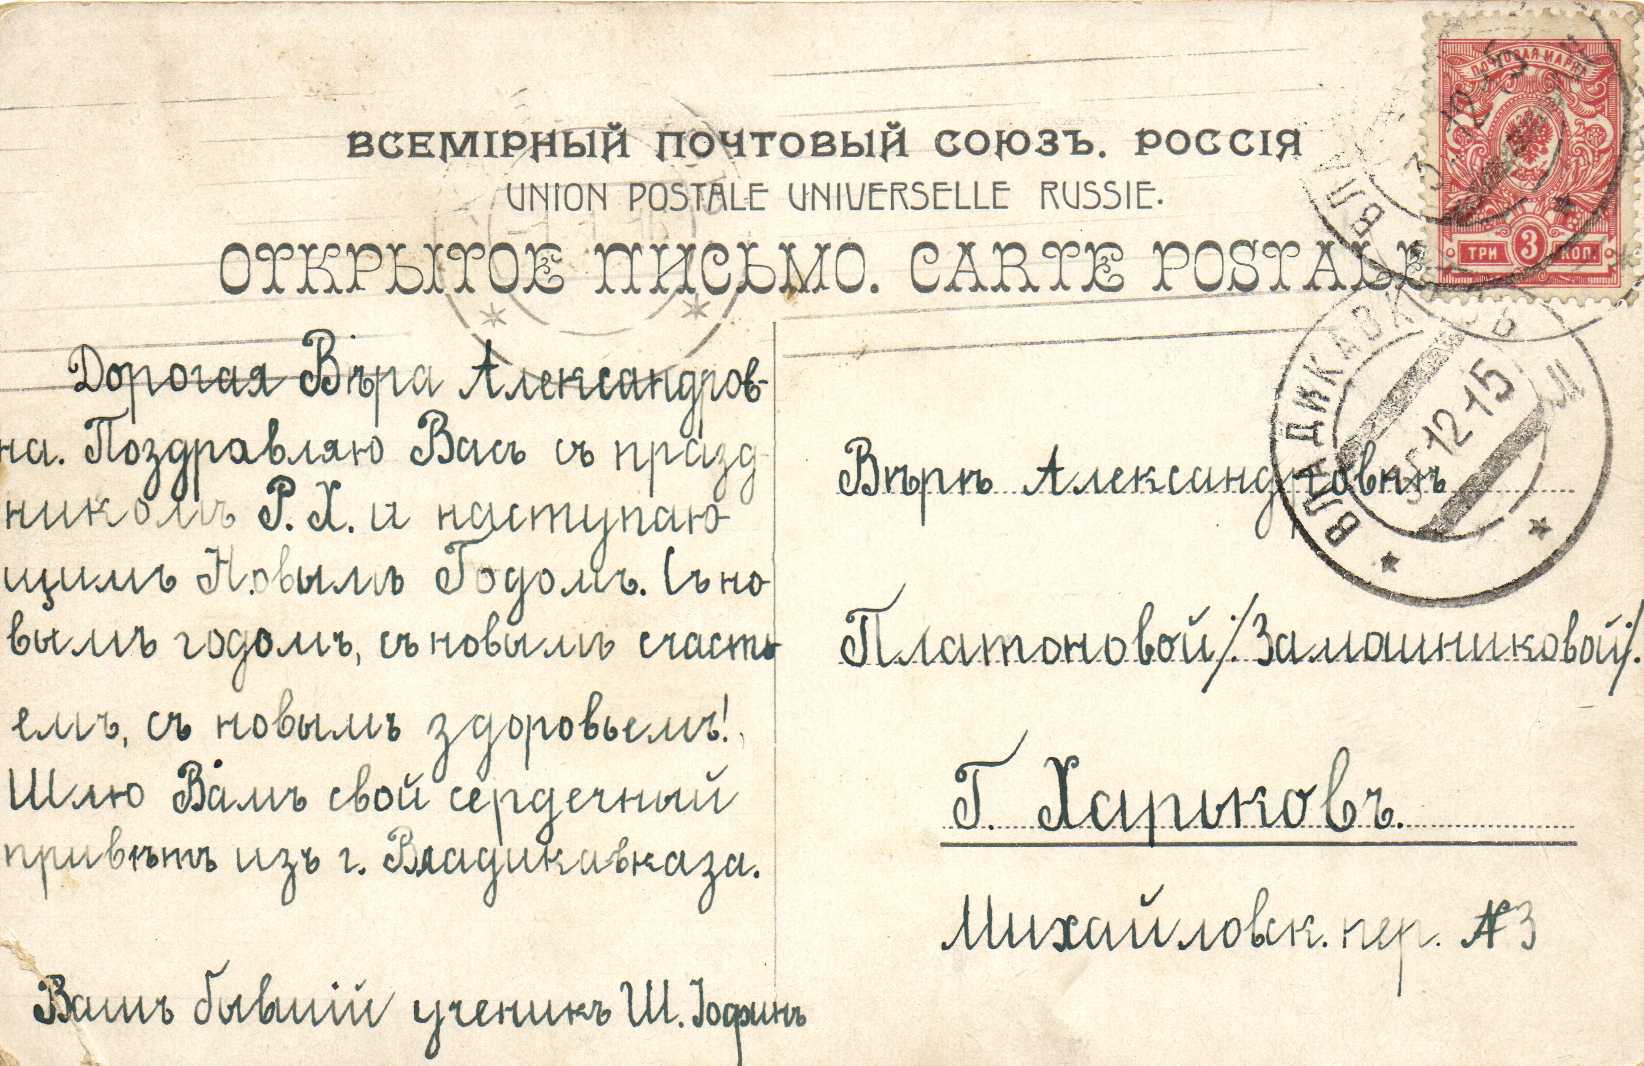 ВСЕМІРНЫЙ ПОЧТОВЫЙ СОЮЗЪ. РОССІЯ
UNION POSTALE UNIVERSELLE RUSSIE.
ОТКРЫТОЕ ПИСЬМО. CARTE POSTALE
ПОЧТОВАЯ МАРКА
ТРИ 3 КОП.
3-12-15
ВЛАДИКАВКАЗЪ
12-15
Дорогая Вѣра Александров-
на. Поздравляю Васъ съ празд-
никомъ Р. Х. и наступаю-
щимъ Новымъ Годомъ. Съ но-
вымъ годомъ, съ новымъ счасть-
емъ, съ новымъ здоровьемъ!
Шлю Вамъ свой сердечный
привѣтъ изъ г. Владикавказа.
Вашъ бывшій ученикъ Ш. Іофинъ
Вѣрѣ Александровнѣ
Платоновой /:Замашниковой/.
Г. Харьковъ.
Михайловск. пер. № 3